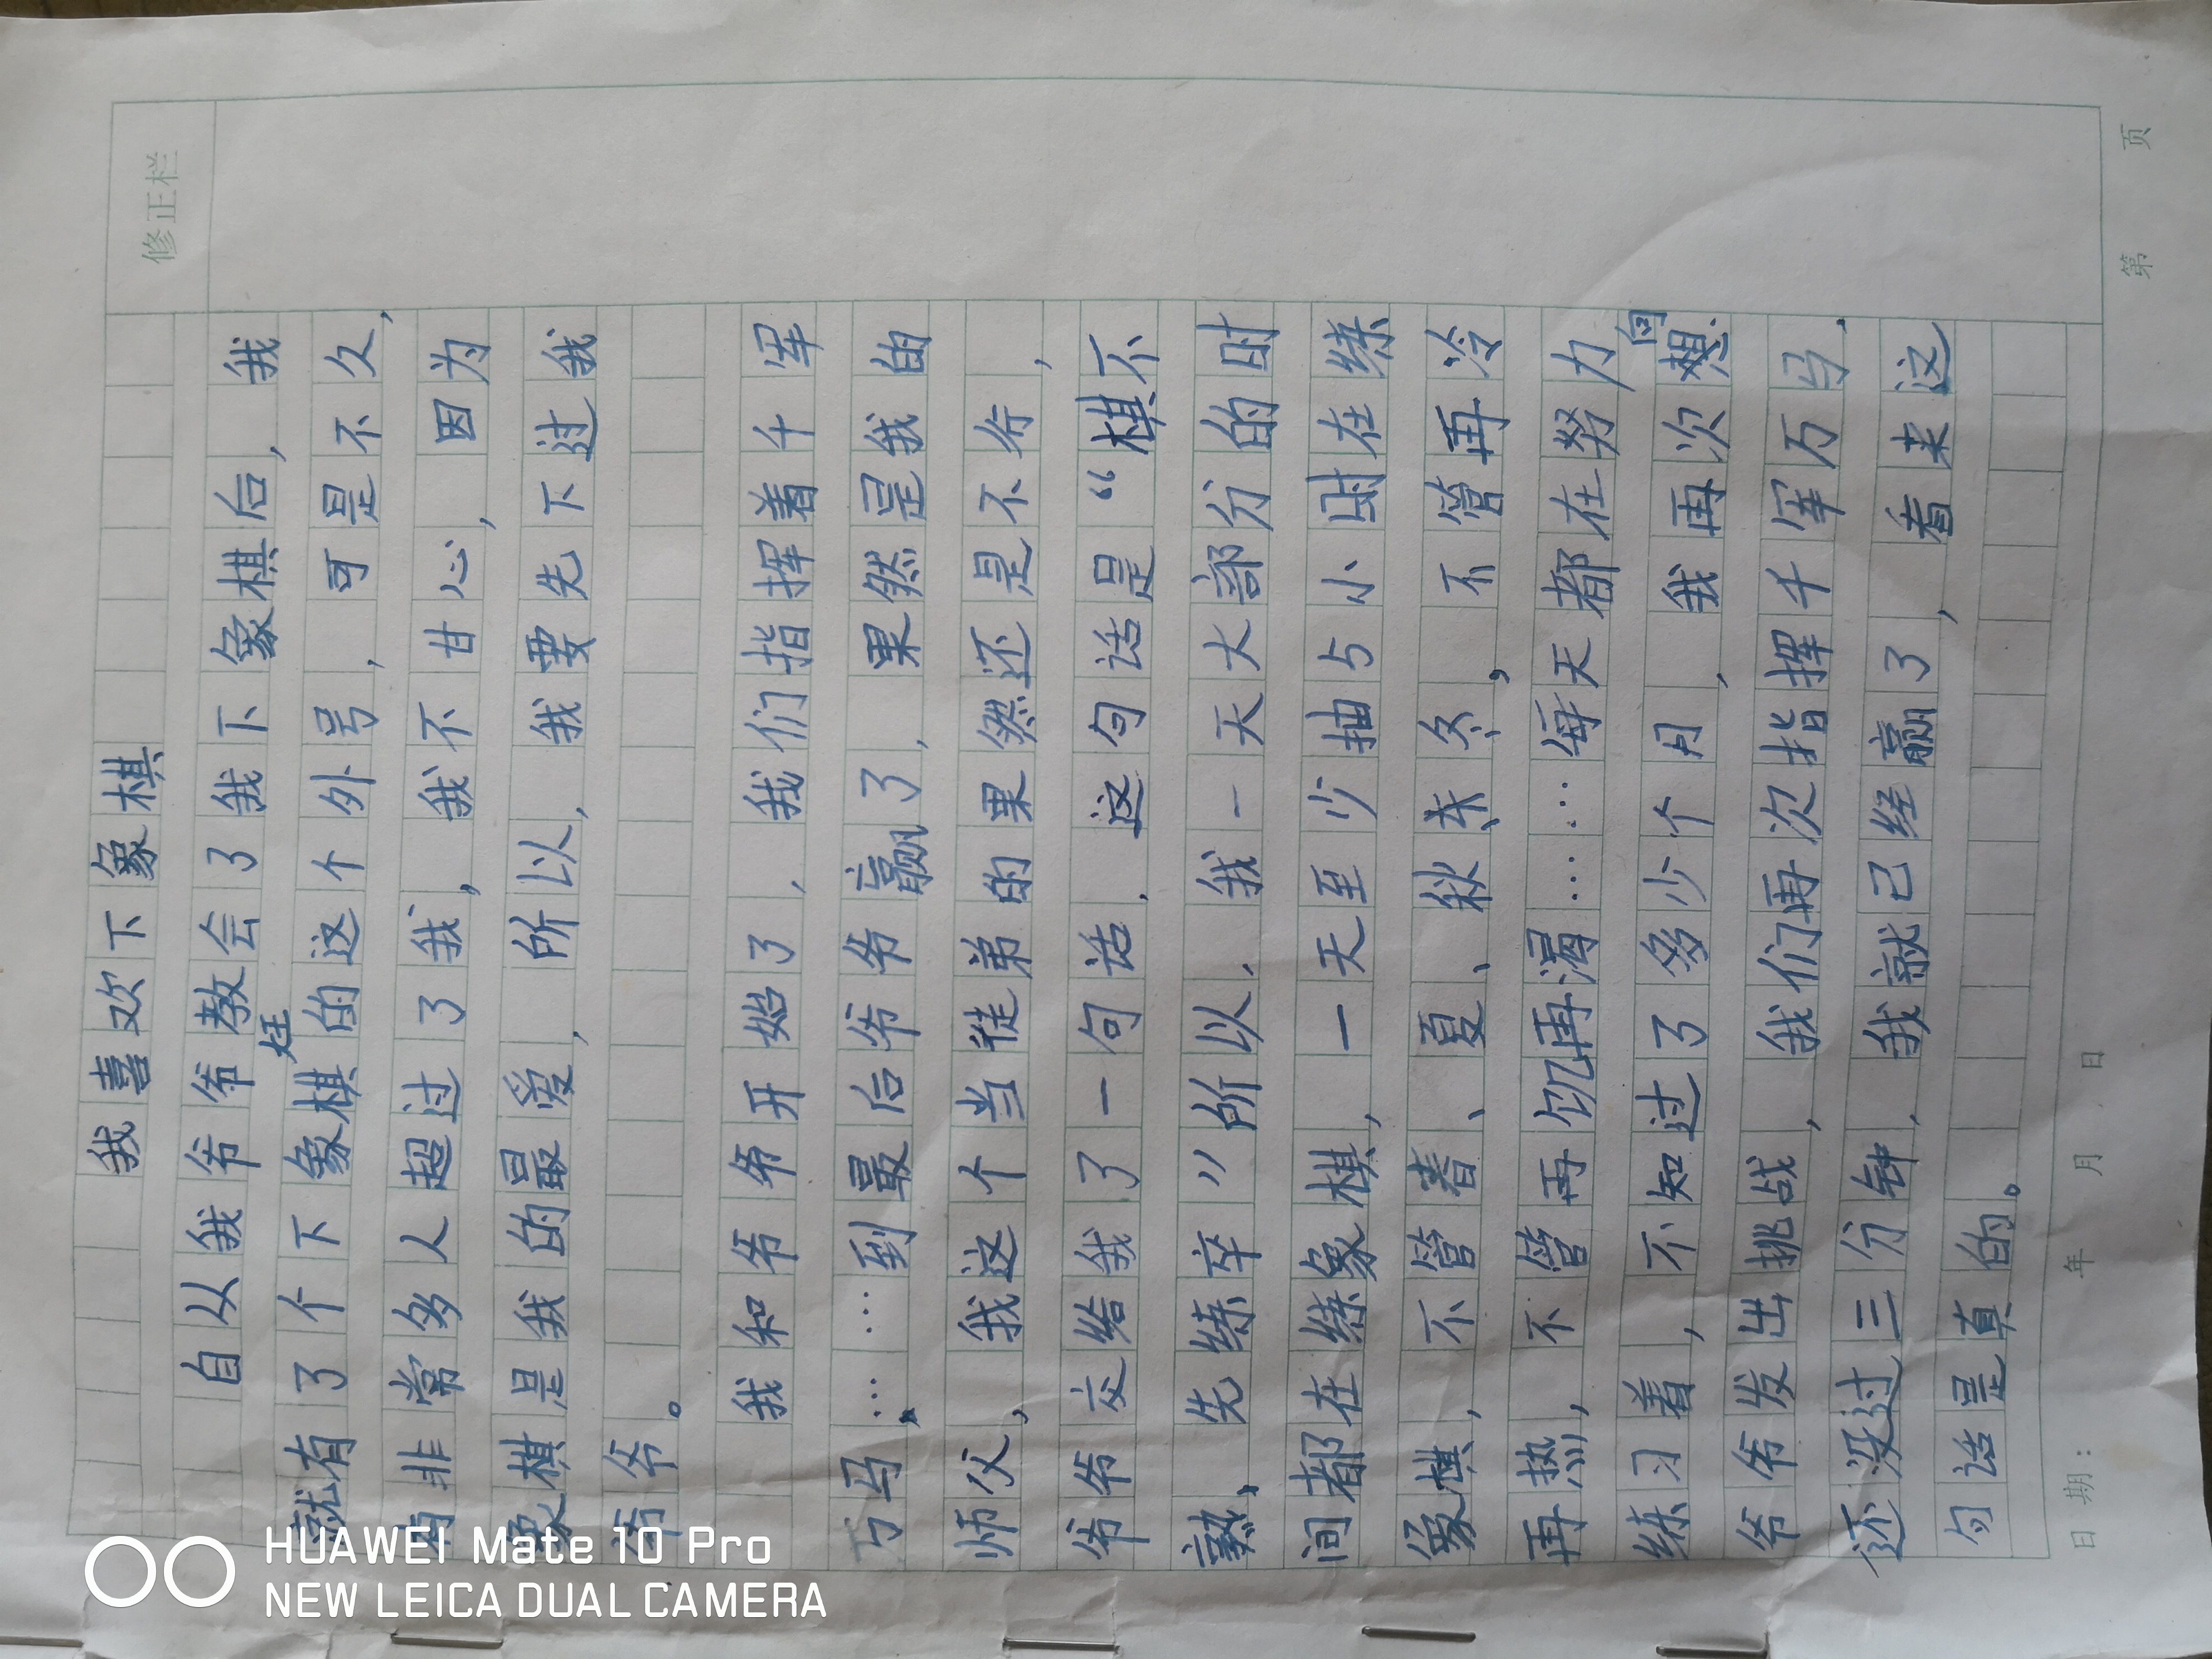 修正栏
我喜欢下象棋
自从我爷爷教会了我下象棋后，我
就有了个下象棋狂的这个外号，可是不久，
有非常多人超过了我，我不甘心，因为
象棋是我的最爱，所以，我要先下过我
爷爷。
我和爷爷开始了，我们指挥着千军
万马，……到最后爷爷赢了，果然是我的
师父，我这个当徒弟的果然还是不行，
爷爷交给我了一句话，这句话是“棋不
熟，先练卒”所以，我一天大部分的时
间都在练象棋，一天至少抽5小时在练
象棋，不管春、夏、秋来冬，不管再冷
再热，不管再饥再渴……每天都在努力
练习着，不知过了多少个月，我再次向
爷爷发出挑战，我们再次指挥千军万马，
还没过三分钟，我就已经赢了，看来这
句话是真的。
日期： 年 月 日
第 页
HUAWEI Mate 10 Pro
NEW LEICA DUAL CAMERA